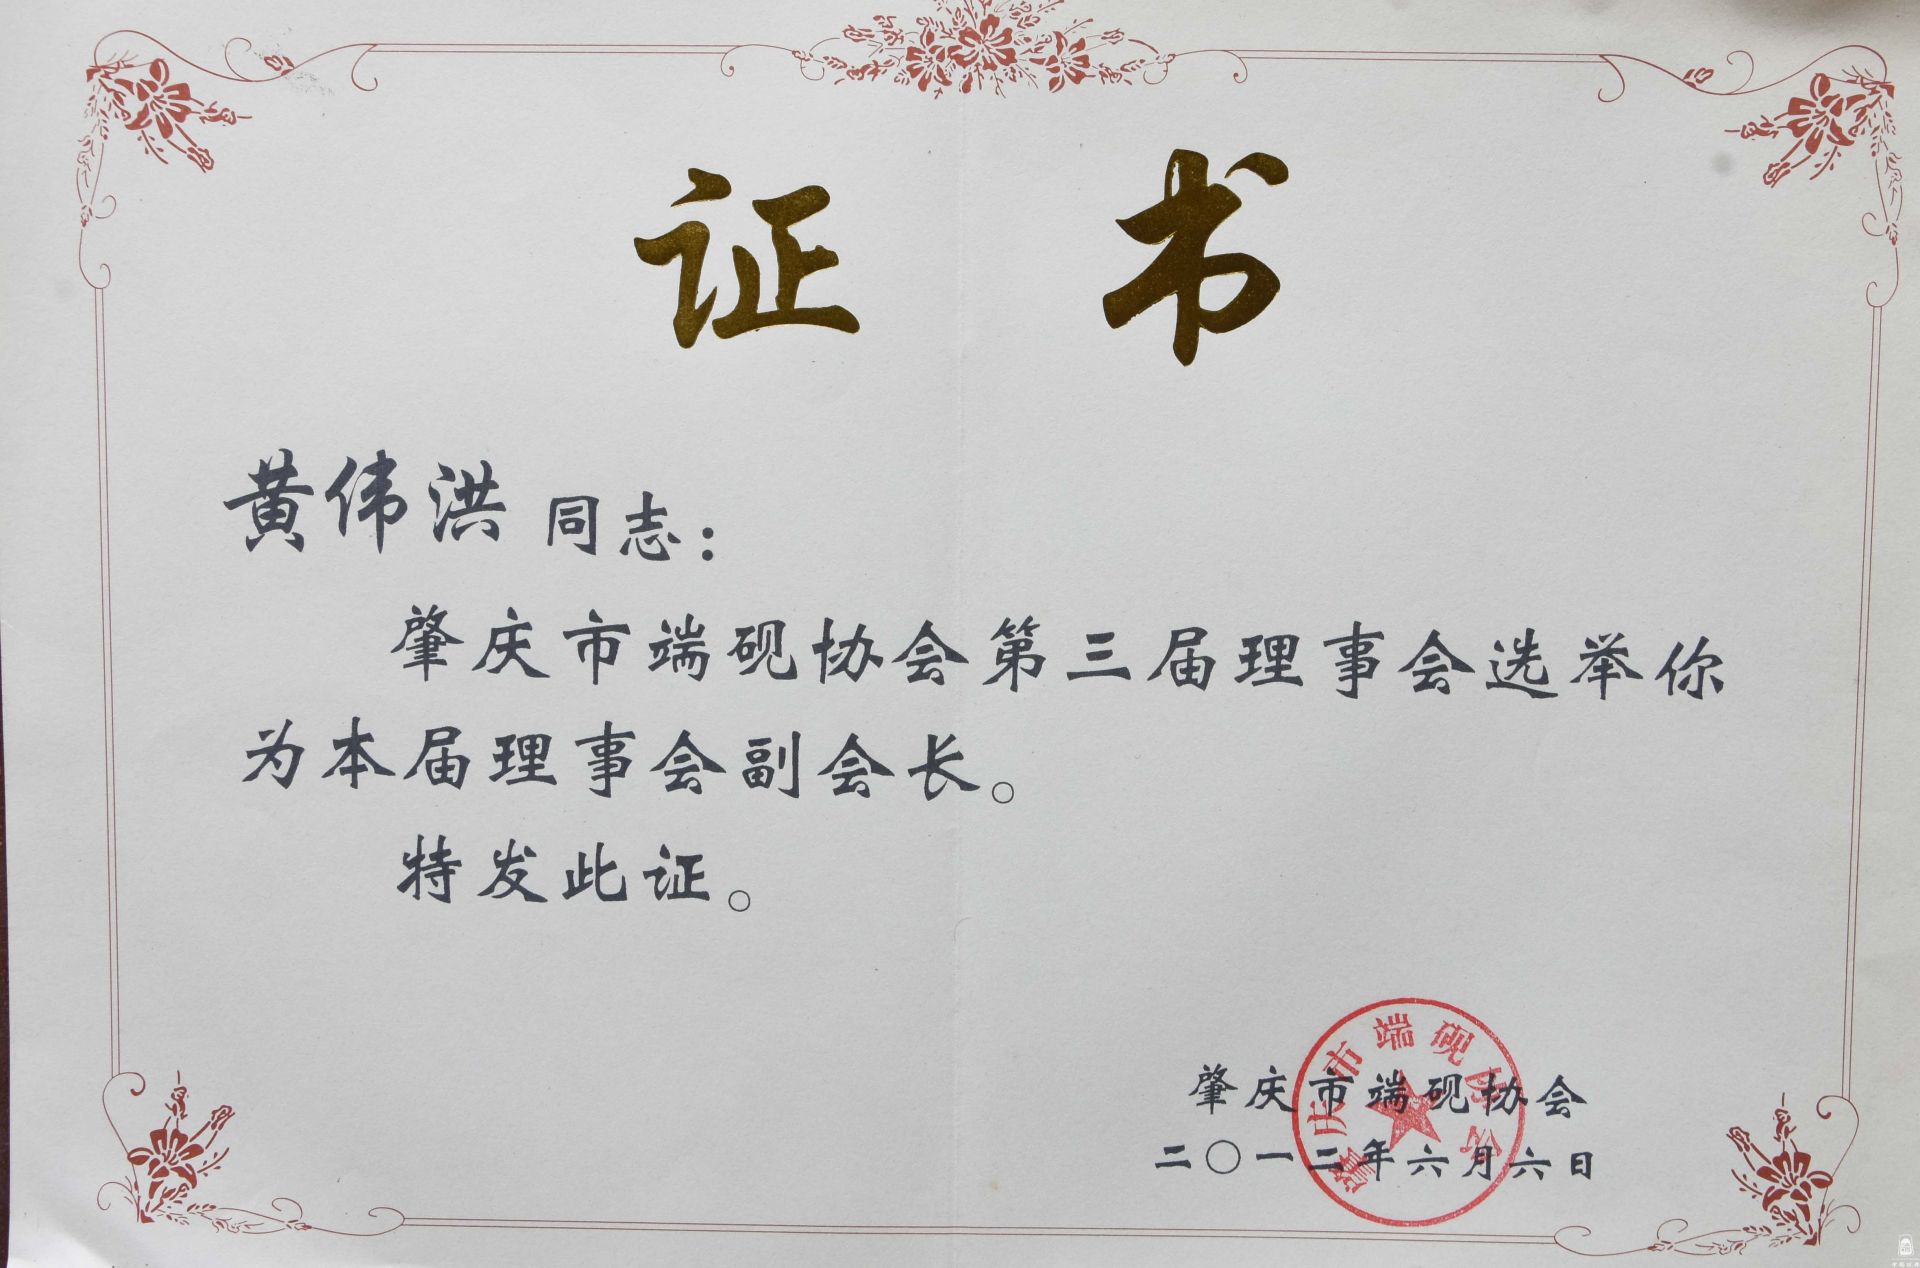 证书
黄伟洪同志：
肇庆市端砚协会第三届理事会选举你
为本届理事会副会长。
特发此证。
肇庆市端砚协会
肇庆市端砚协会
二〇一三年六月六日